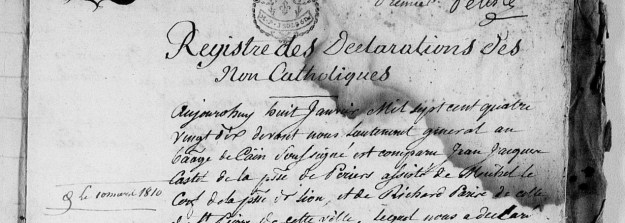 Premier feuille
Registre des Declarations des
Non Catholiques
Aujourdhuy huit Janvier Mil sept cent quatre
vingt dix devant nous Lieutenant general au
Bage de Caën Soussigné est comparu Jean Jacques
Castel de la psse de Periers assisté de Michel le
Cors de la psse de Lion, et de Richard Paris de celle
de St Pierre de cette ville, lequel nous a declaré
le 10 mars 1810